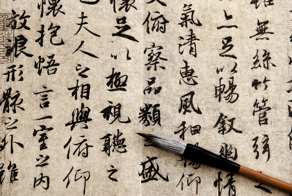 無絲竹管弦
亦足以暢叙幽情
氣清惠風和暢仰
大俯察品類之盛
懷足以極視聽之
也夫人之相與俯仰
懷抱悟言一室之内
放浪形骸之外雖